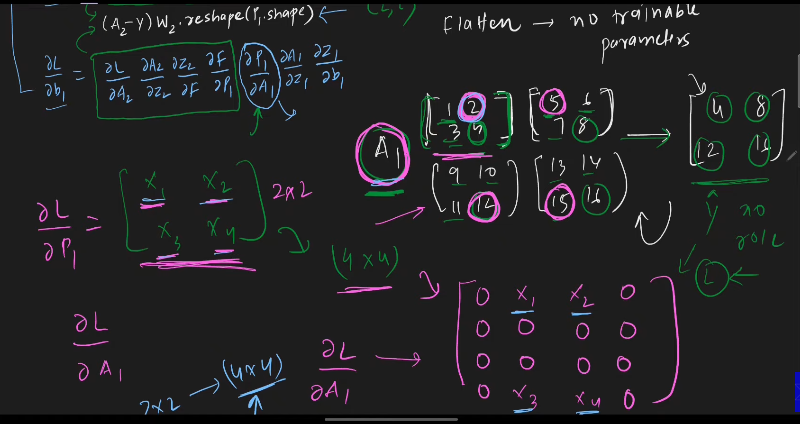 (A₂-Y) W₂.reshape(P₁.shape) ←
Flatten → no trainable
parameters
∂L/∂b₁ = ∂L/∂A₂ ∂A₂/∂Z₂ ∂Z₂/∂F ∂F/∂P₁ ∂P₁/∂A₁ ∂A₁/∂Z₁ ∂Z₁/∂b₁
A₁
1 2
3 4
5 6
7 8
9 10
11 12
13 14
15 16
→
4 8
12 16
no
role
L ←
∂L/∂P₁ =
X₁ X₂
X₃ X₄
2x2
(4x4)
∂L/∂A₁
2x2 → (4x4)
∂L/∂A₁ →
0 X₁ X₂ 0
0 0 0 0
0 0 0 0
0 X₃ X₄ 0